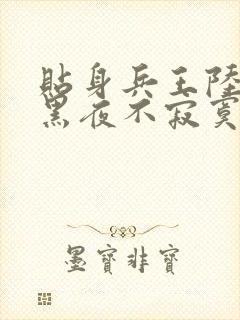 貼身兵王陸
黑夜不寂寞
墨寶非寶